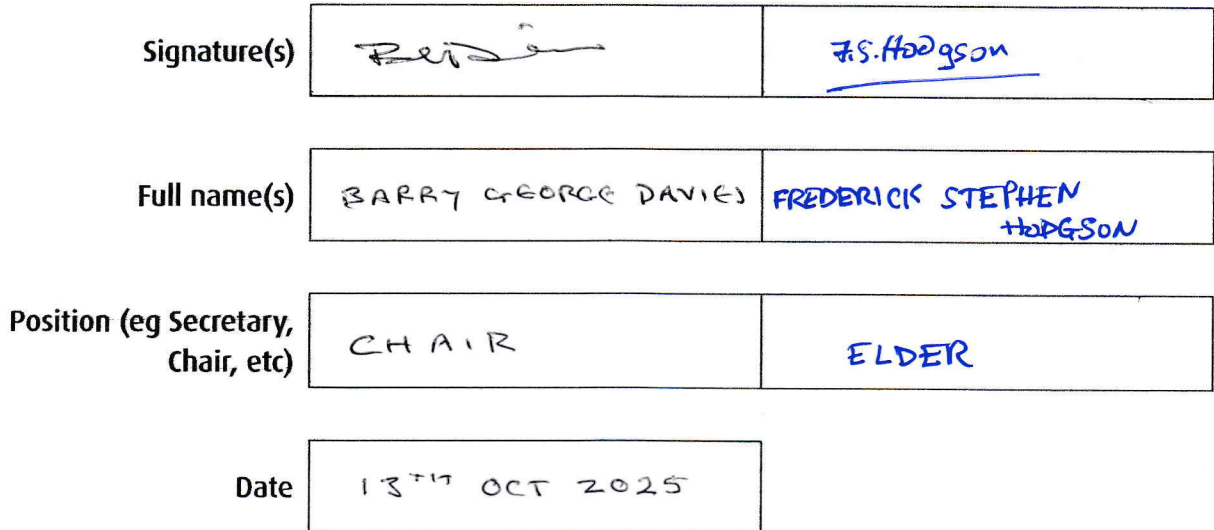 Signature(s)
F.S.Hodgson
Full name(s)
BARRY GEORGE DAVIES
FREDERICK STEPHEN
HODGSON
Position (eg Secretary,
Chair, etc)
CHAIR
ELDER
Date
13TH OCT 2025